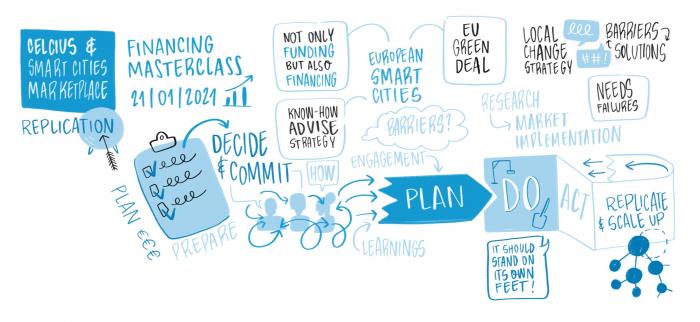 CELCIUS &
SMART CITIES
MARKETPLACE
FINANCING
MASTERCLASS
21/01/2021
REPLICATION
PLAN €€€
PREPARE
DECIDE
& COMMIT
HOW
NOT ONLY
FUNDING
BUT ALSO
FINANCING
KNOW-HOW
ADVISE
STRATEGY
EUROPEAN
SMART
CITIES
EU
GREEN
DEAL
BARRIERS?
ENGAGEMENT
LEARNINGS
PLAN
RESEARCH
MARKET
IMPLEMENTATION
LOCAL
CHANGE
STRATEGY
##!
BARRIERS
& SOLUTIONS
NEEDS
FAILURES
DO
ACT
IT SHOULD
STAND ON
ITS OWN
FEET!
REPLICATE
& SCALE UP